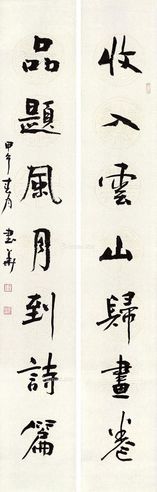 收入雲山歸畫卷
品題風月到詩篇
甲午春月